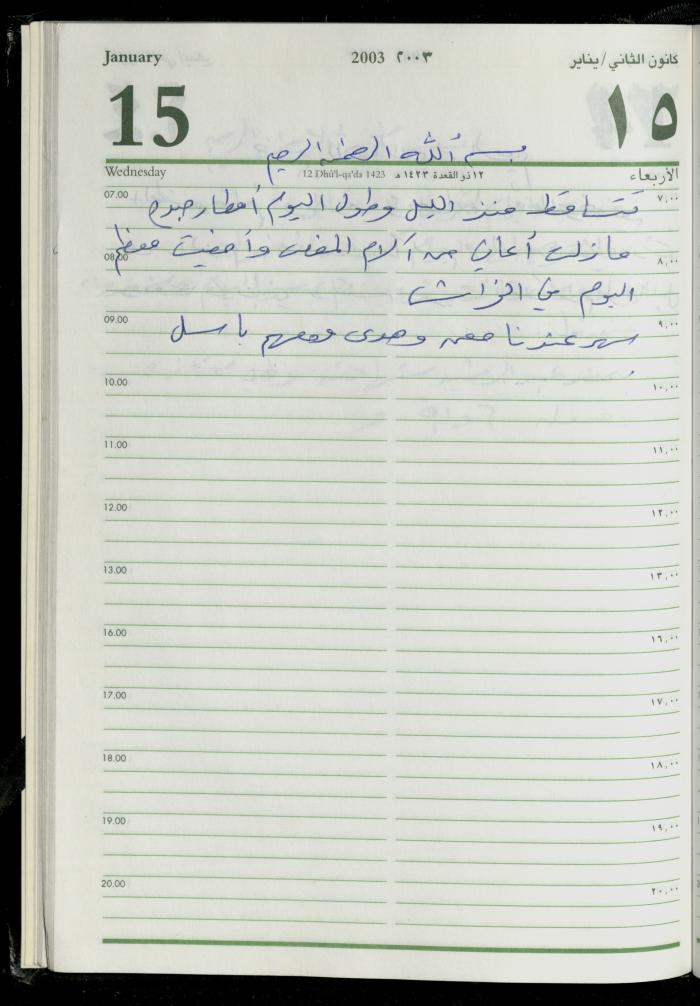 January 2003 ٢٠٠٣ كانون الثاني/يناير
15 ١٥
بسم الله الرحمن الرحيم
Wednesday 12 Dhū'l-qa'da 1423 ١٢ ذو القعدة ١٤٢٣ هـ الأربعاء
07.00 ٧,٠٠
تتساقط منذ الليل وطول اليوم أمطار جيدة
مازلت أعاني من آلام المغص وأمضيت معظم
08.00 ٨,٠٠
اليوم في الفراش
09.00 ٩,٠٠
سهر عندنا معن وهدى ومعهم باسل
10.00 ١٠,٠٠
11.00 ١١,٠٠
12.00 ١٢,٠٠
13.00 ١٣,٠٠
16.00 ١٦,٠٠
17.00 ١٧,٠٠
18.00 ١٨,٠٠
19.00 ١٩,٠٠
20.00 ٢٠,٠٠